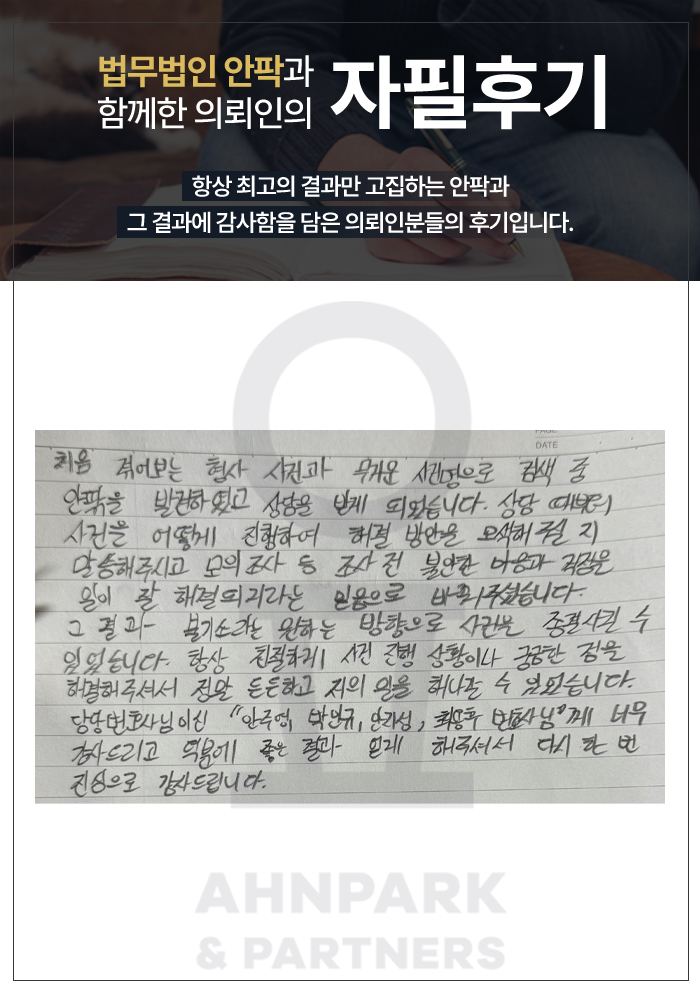 법무법인 안팍과
함께한 의뢰인의
자필후기
항상 최고의 결과만 고집하는 안팍과
그 결과에 감사함을 담은 의뢰인분들의 후기입니다.
PAGE
DATE
처음 겪어보는 형사 사건과 무거운 사건명으로 검색 중
안팍을 발견하였고 상담을 받게 되었습니다. 상담 때부터
사건을 어떻게 진행하여 해결 방안을 모색해 주실 지
말씀해주시고 모의조사 등 조사 전 불안한 마음과 걱정은
일이 잘 해결되리라는 믿음으로 바꿔주셨습니다.
그 결과 불기소라는 원하는 방향으로 사건을 종결시킬 수
있었습니다. 항상 친절하게 사건 진행 상황이나 궁금한 점을
해결해주셔서 정말 든든하고 저의 일을 해나갈 수 있었습니다.
담당변호사님이신 "안주영, 박민규, 안지성, 최승후 변호사님"께 너무
감사드리고 덕분에 좋은 결과 있게 해주셔서 다시 한 번
진심으로 감사드립니다.
AHNPARK
& PARTNERS